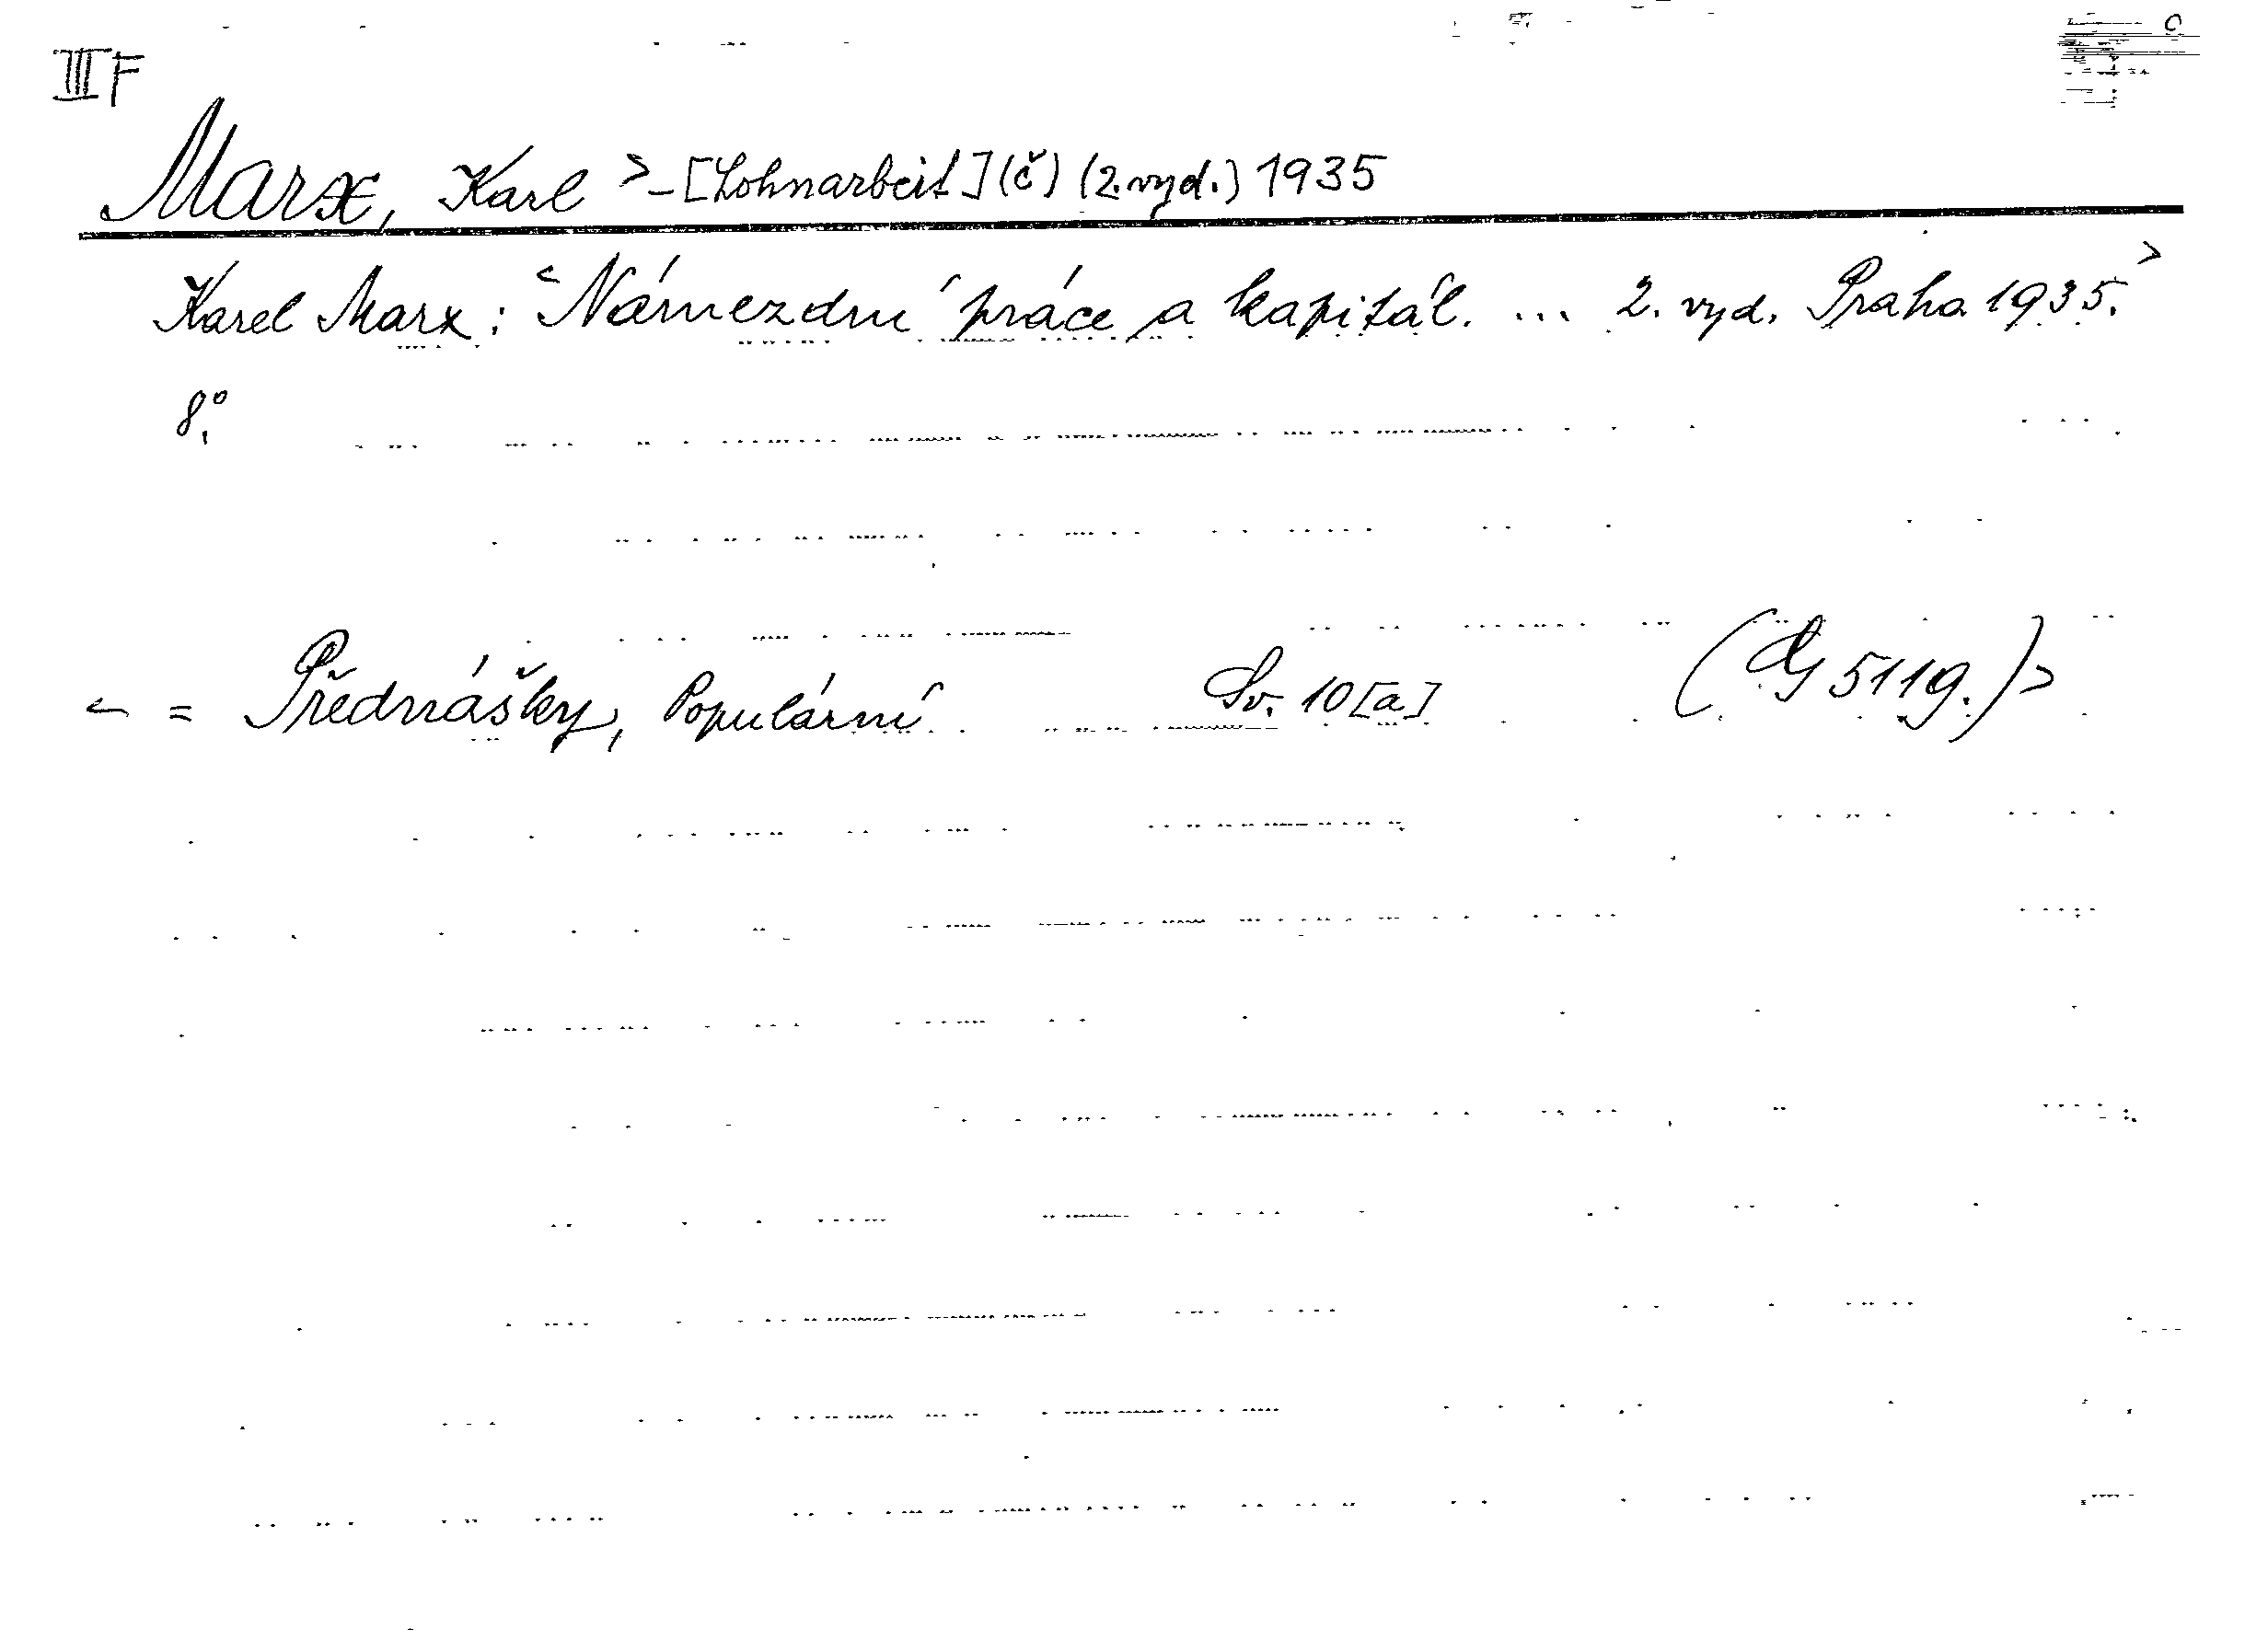 III F
Marx, Karl >-[Lohnarbeit] (č) (2. vyd.) 1935
Karel Marx: <Námezdní práce a kapitál. ... 2. vyd. Praha 1935.>
8°.
< = Přednášky, Populární Sv. 10[a] (G 5119.)>